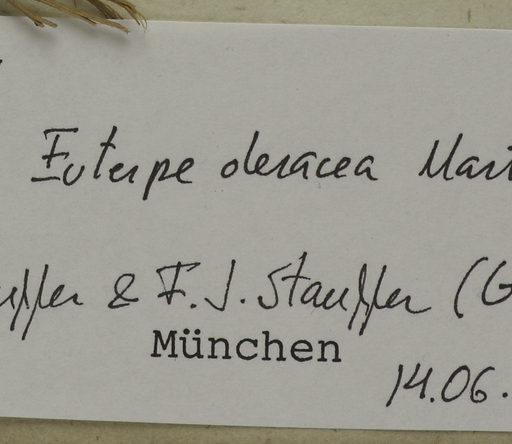 Euterpe oleracea Mart
uffer & F. J. Stauffer (G
München
14.06.